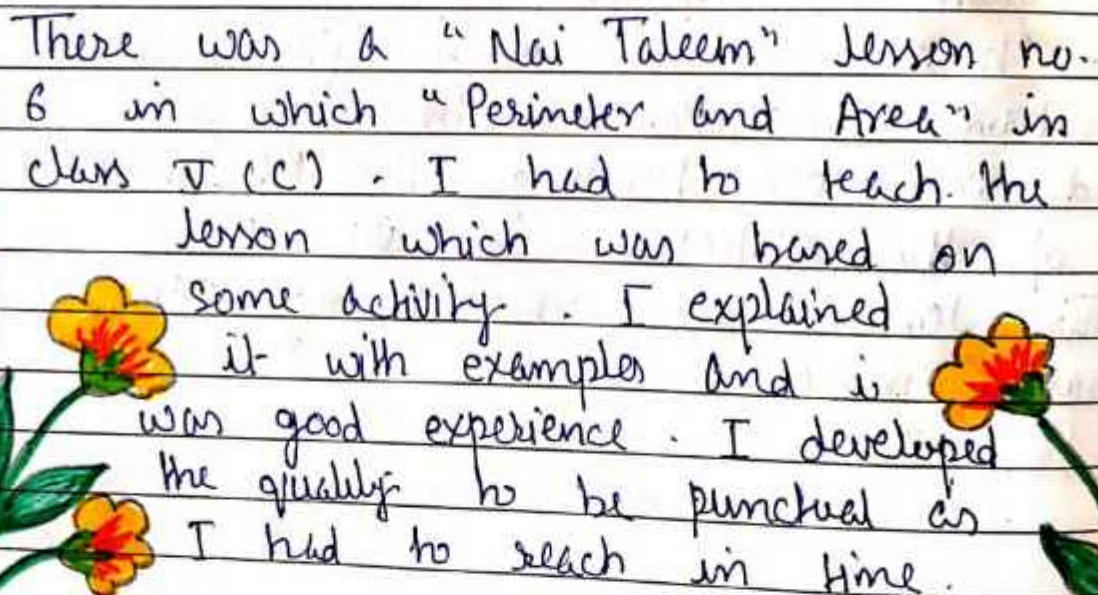 There was a "Nai Taleem" lesson no.
6 in which "Perimeter and Area" in
class V (C). I had to teach the
lesson which was based on
some activity. I explained
it with examples and i
was good experience. I developed
the quality to be punctual as
I had to reach in time.